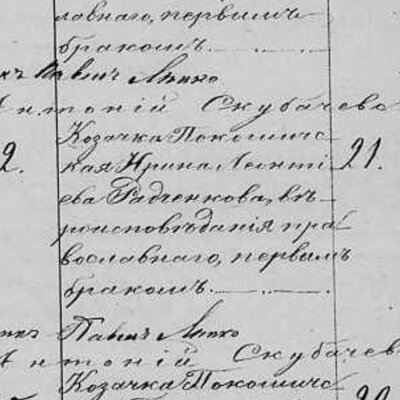 лавнаго, первымъ
бракомъ.
Павич Липко
Антоній Скубачево
2. Козачка Покошичс- 21.
кая Ирина Леонті-
ева Радченкова, въ-
роисповѣданія пра-
вославнаго, первымъ
бракомъ.
Павич Липко
Антоній Скубачев
Козачка Покошичс-